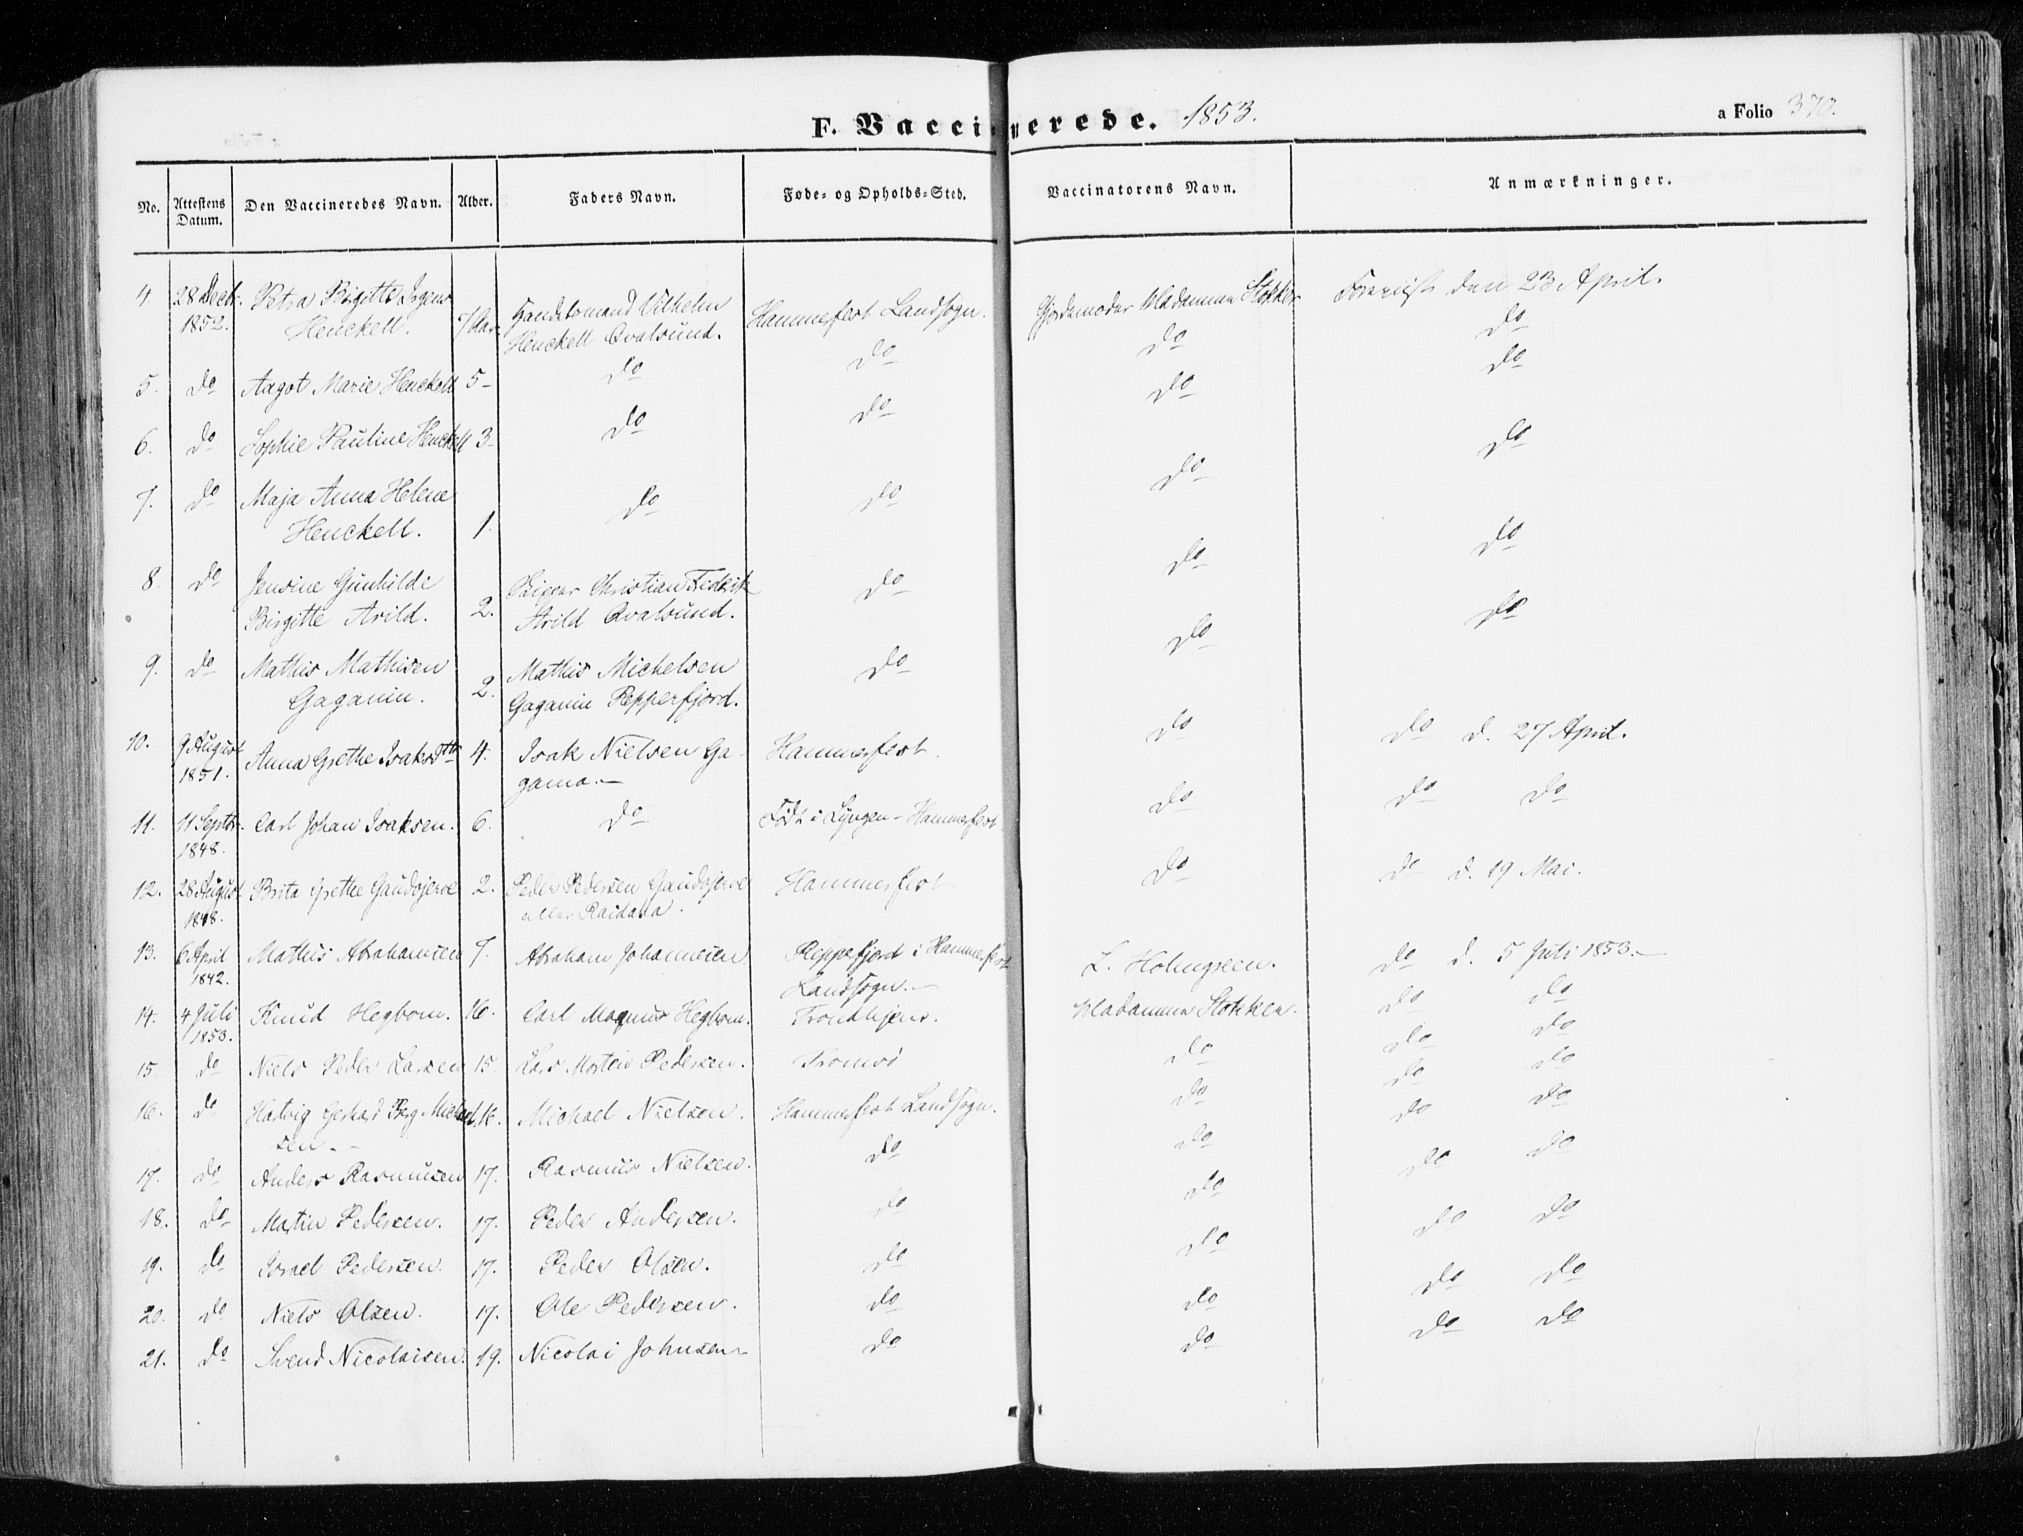 F. Vaccinerede. 1853.
a Folio 370.
No. Attestens Datum. Den Vaccineredes Navn. Alder. Faders Navn. Føde- og Opholds-Sted. Vaccinatorens Navn. Anmærkninger.
4 28 Decbr. Petra Birgitte Irgens Handelsmand Vilhelm Hammerfest Landsogn. Gjordemoder Madamme Stokken Foreviist den 23 April.
1852. Henckell. 7 Aar. Henckell Qvalsund. do
5. do Aagot Marie Henckell 5- do do do do
6. do Sophie Pauline Henckell 3- do do do do
7. do Maja Anna Helene do do do do
Henckell. 1.
8. do Jensine Gunhilde Christian Fedrik do do do
Birgitte Arild. 2. Arild Qvalsund.
9. do Mathis Mathisen Mathis Michelsen do do do
Gaganin. 2. Gaganin Repperfjord.
10. 9 August Anna Grethe Isaksdttr 4. Isak Nielsen Ga- Hammerfest. do do d. 27 April.
1851. gama.-
11. 11 Septbr. Carl Johan Isaksen. 6. do Født i Lyngen - Hammerfest do do do
1848.
12. 28 August Brita Grethe Gaudojerve 2. Peder Pedersen Gaudojerve Hammerfest do do d. 19 Mai.
1848. eller Raidana.
13. 6 April Mathis Abrahamsen 7. Abraham Johannesen Reppefjord i Hammerfest L. Holmgreen. do d. 5 Juli 1853.-
1842. Landsogn.-
14. 4 Juli Knud Hegbom. 16. Carl Magnus Hegbom. Trondhjem. Madamme Stokken. do do
1853.
15. do Niels Peder Larsen 15. Lars Morten Pedersen. Tromsö do do do
16. do Hatvig Gerhard Berg Michael 16. Michael Nielsen. Hammerfest Landsogn. do do do
sen.-
17. do Anders Rasmusen 17. Rasmus Nielsen. do do do do
18. do Martin Pedersen. 17. Peder Andersen. do do do do
19. do Israel Pedersen. 17. Peder Olsen. do do do do
20. do Niels Olsen. 17. Ole Pedersen. do do do do
21. do Svend Nicolaisen. 19. Nicolai Johnsen do do do do